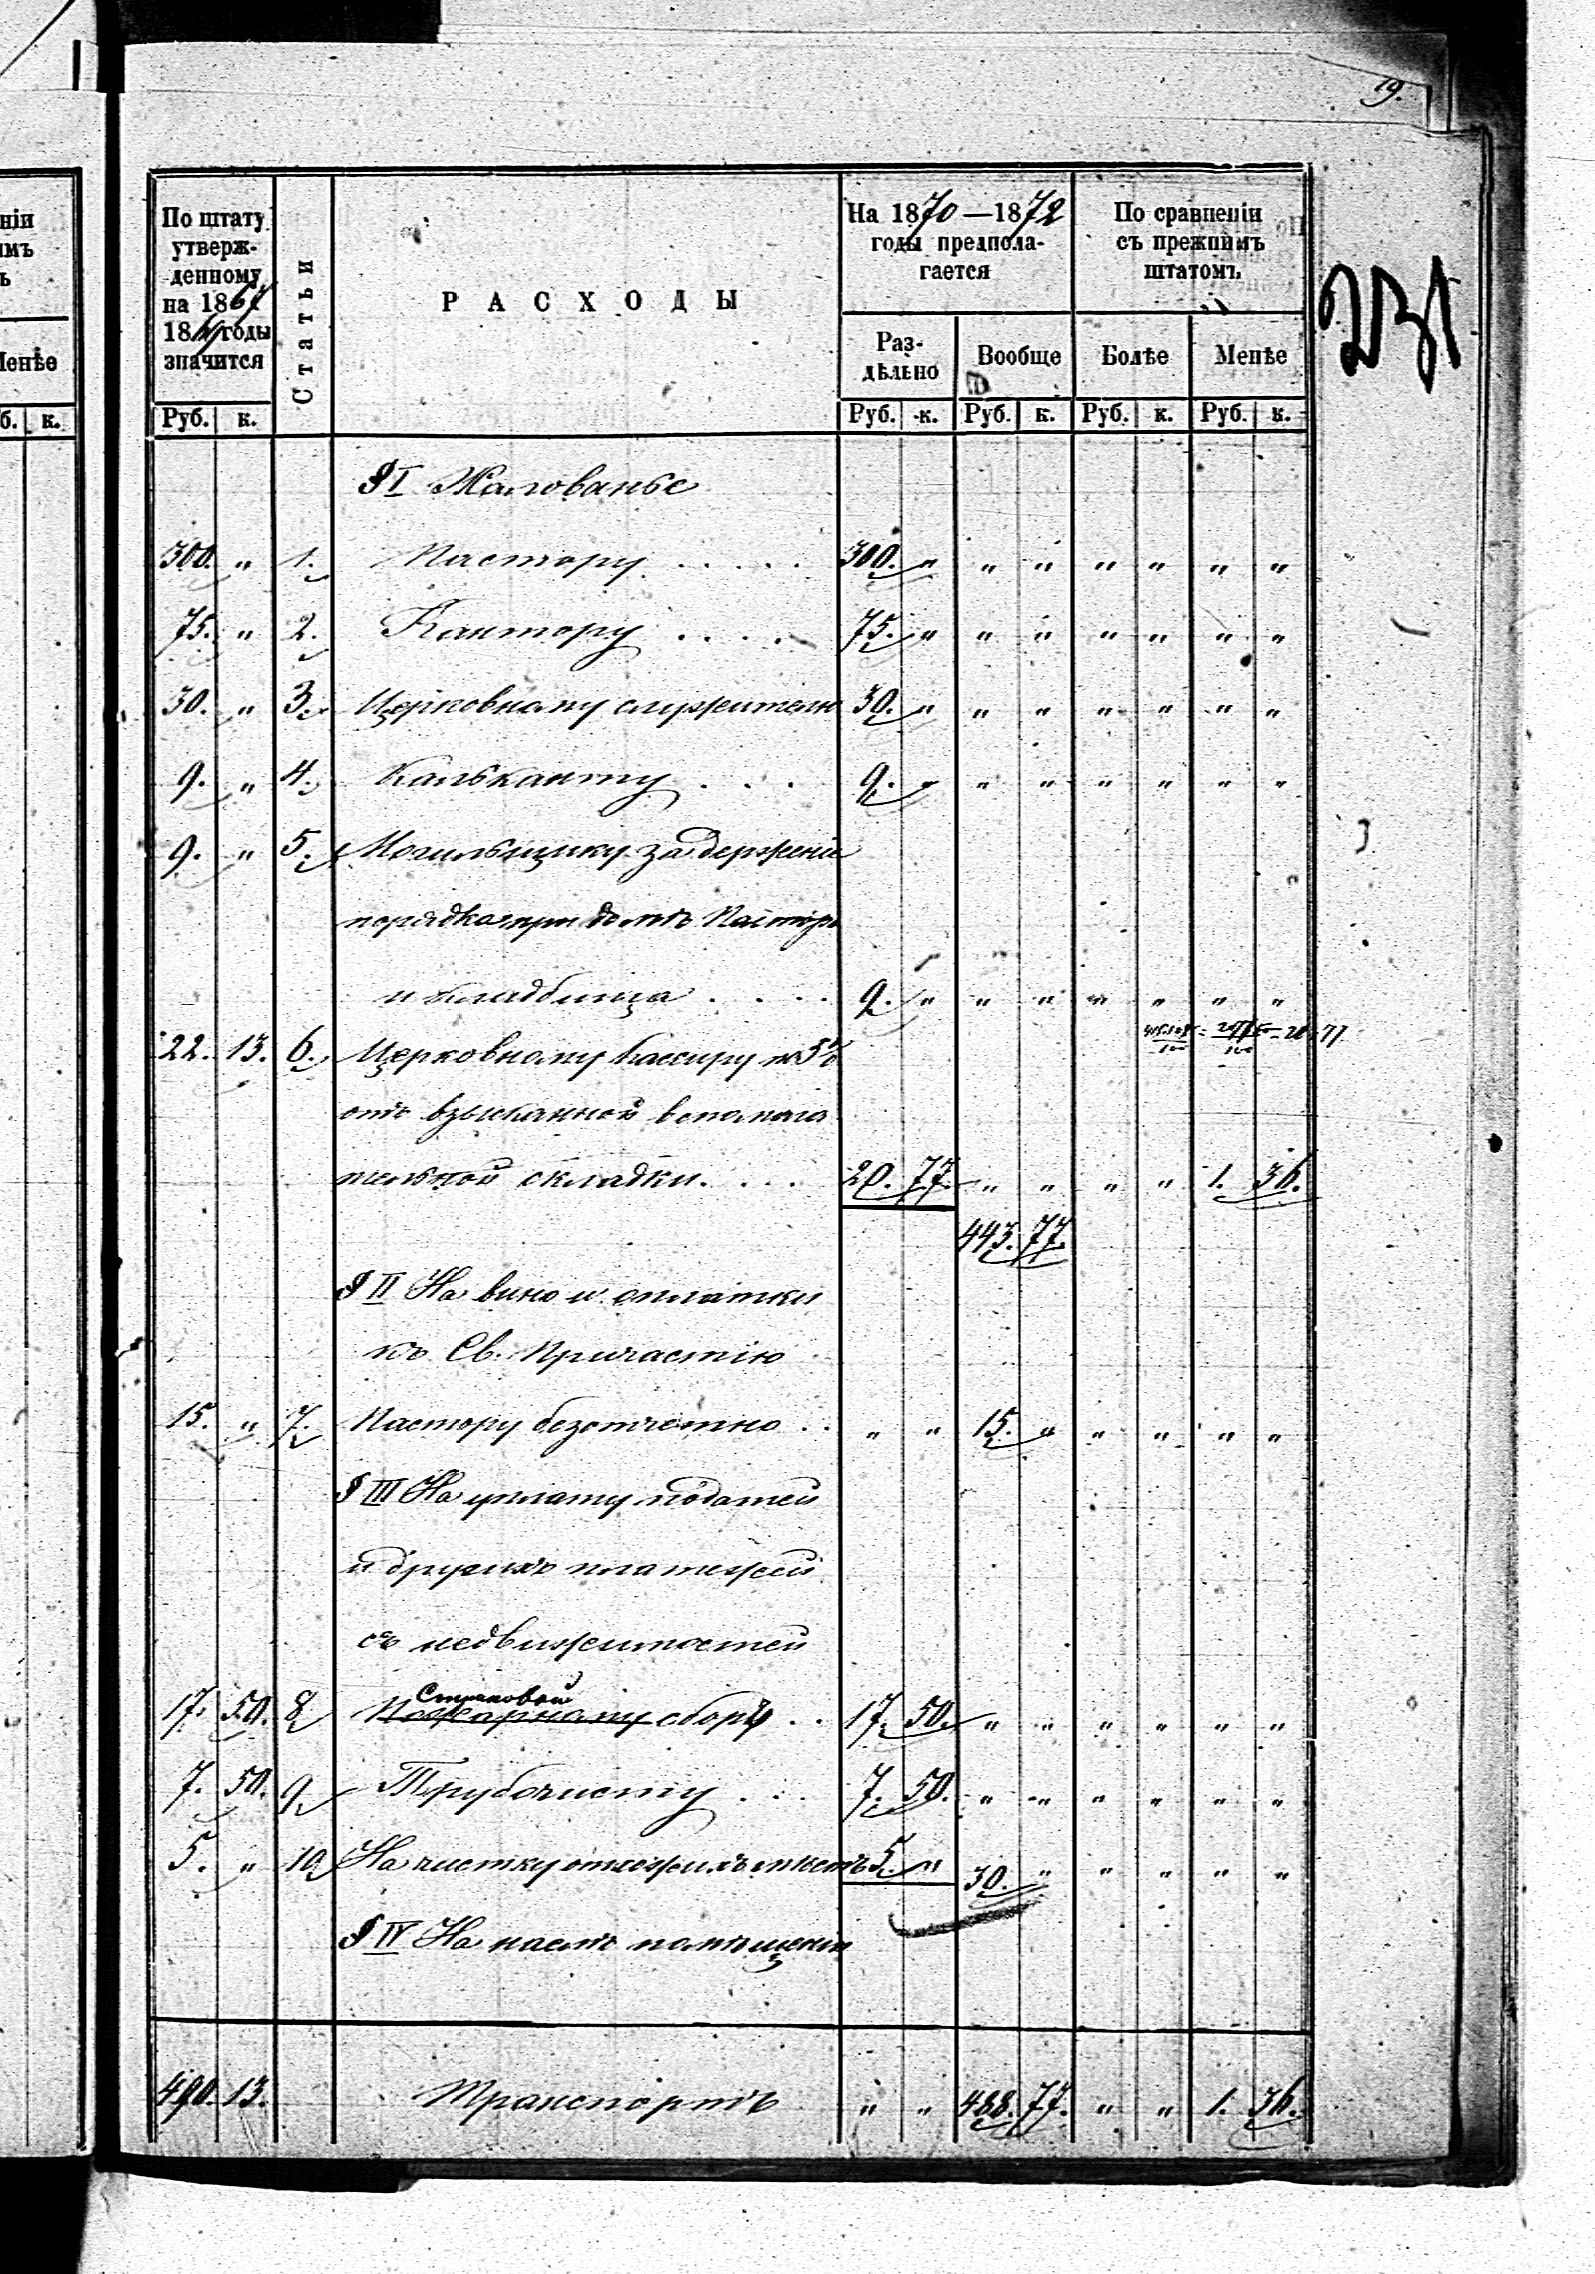 19.
231
По штату утверж-денному на 1867 18 годы значится
Статьи
РАСХОДЫ
На 1870—1872 годы предпола-гается
По сравненіи съ прежнимъ штатомъ.
Раз-дѣльно
Вообще
Болѣе
Менѣе
Руб. к. Руб. к. Руб. к. Руб. к. Руб. к.
ніи
имъ
ъ
Менѣе
б. к.
§ I Жалованье
300. „ 1. Пастору . . . . . 300. „ „ „ „ „ „ „
75. „ 2. Кантору . . . . 75. „ „ „ „ „ „ „
30. „ 3. Церковному служителю 30. „ „ „ „ „ „ „
9. „ 4. Кальканту . . . 9. „ „ „ „ „ „ „
9. „ 5. Могильщику за держеніе
порядка при домѣ Пастора
и кладбища . . . . 9. „ „ „ „ „ „ „
22. 13. 6. Церковному Кассиру по 5%
отъ взысканной вспомога
тельной складки. . . . 20. 77 „ „ „ „ 1. 36.
443. 77.
§ II На вино и оплатки
къ Св. Причастію
15. „ 7. Пастору безотчетно . . „ „ 15. „ „ „ „ „
§ III На уплату податей
и другихъ платежей
съ недвижимостей
Страховой
17. 50. 8. Пожарному сборъ . . 17. 50. „ „ „ „ „ „
7. 50. 9. Трубочисту . . . 7. 50. „ „ „ „ „ „
5. „ 10. На чистку отхожихъ мѣстъ 5. „ 30. „ „ „ „ „
§ IV На наемъ помѣщенія
490. 13. Транспортъ „ „ 488. 77. „ „ 1. 36.